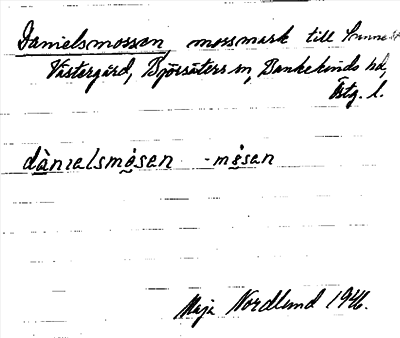 Danielsmossen, mossmark till
Västergård, Björsäters sn, Bankekinds hd,
Östg. l.
dànıalsmosen -mosan
Maja Nordlund 1946.